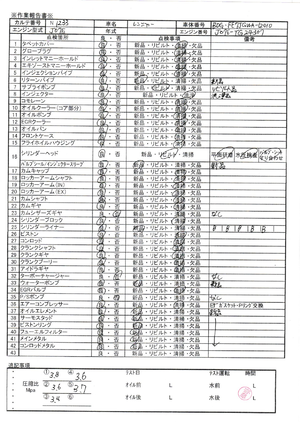 ※作業報告書※
カルテ番号 N 1233 車名 レンジャー 車体番号
エンジン型式 J07E 年式 エンジン番号
点検箇所 良・否 点検事項 備考
1 タペットカバー 良・否 新品・リビルト・清掃・欠品
2 グロープラグ 良・否 新品・リビルト・清掃・欠品
3 インレットマニーホールド 良・否 新品・リビルト・清掃・欠品
4 エキゾーストマニーホールド 良・否 新品・リビルト・清掃・欠品
5 インジェクションパイプ 良・否 新品・リビルト・清掃・欠品
6 リターンパイプ 良・否 新品・リビルト・清掃・欠品 新品
7 サプライポンプ 良・否 新品・リビルト・清掃・欠品
8 インジェクター 良・否 新品・リビルト・清掃・欠品
9 コモレーン 良・否 新品・リビルト・清掃・欠品
10 オイルクーラー(コア部分) 良・否 新品・リビルト・清掃・欠品
11 オイルポンプ 良・否 新品・リビルト・清掃・欠品
12 EGRクーラー 良・否 新品・リビルト・清掃・欠品
13 オイルパン 良・否 新品・リビルト・清掃・欠品
14 フロントケース 良・否 新品・リビルト・清掃・欠品
15 フライホイルハウジング 良・否 新品・リビルト・清掃・欠品
16 シリンダーヘッド 良・否 新品・リビルト・清掃 平面研磨 水圧検査
良・否 新品・リビルト・清掃・欠品 新品
17 カムキャップ 良・否 新品・リビルト・清掃・欠品
18 ロッカーアームシャフト 良・否 新品・リビルト・清掃・欠品
19 ロッカーアーム(IN) 良・否 新品・リビルト・清掃・欠品
20 ロッカーアーム(EX) 良・否 新品・リビルト・清掃・欠品
21 カムシャフト 良・否 新品・リビルト・清掃・欠品
22 カムギヤ 良・否 新品・リビルト・清掃・欠品
23 カムシザーズギヤ 良・否 新品・リビルト・清掃・欠品 なし
24 シリンダーブロック 良・否 新品・リビルト・清掃・欠品
25 シリンダーライナー 良・否 新品・リビルト・清掃・欠品
26 ピストン 良・否 新品・リビルト・清掃・欠品
27 コンロッド 良・否 新品・リビルト・清掃・欠品
28 クランクシャフト 良・否 新品・リビルト・清掃・欠品
29 クランクギヤ 良・否 新品・リビルト・清掃・欠品
30 クランクプーリー 良・否 新品・リビルト・清掃・欠品
31 アイドラギヤ 良・否 新品・リビルト・清掃・欠品
32 ターボチャージャー 良・否 新品・リビルト・清掃・欠品 なし
33 ウォーターポンプ 良・否 新品・リビルト・清掃・欠品 新品
34 EGRバルブ 良・否 新品・リビルト・清掃・欠品
35 P/Sポンプ 良・否 新品・リビルト・清掃・欠品 なし
36 エアーコンプレッサー 良・否 新品・リビルト・清掃・欠品
37 オイルエレメント 良・否 新品・リビルト・清掃・欠品 新品
38 サーモスタット 良・否 新品・リビルト・清掃・欠品
39 ピストンリング 良・否 新品・リビルト・清掃・欠品
40 フューエルフィルター 良・否 新品・リビルト・清掃・欠品
41 メインメタル 良・否 新品・リビルト・清掃・欠品
42 コンロッドメタル 良・否 新品・リビルト・清掃・欠品
43 良・否 新品・リビルト・清掃・欠品
追記事項
① 3.8 ④ 3.6 テスト日 テスト運転 時間
圧縮圧 Mpa ② 3.6 ⑤ 3.7 オイル前 L 水前 L
③ 3.6 オイル後 L 水後 L